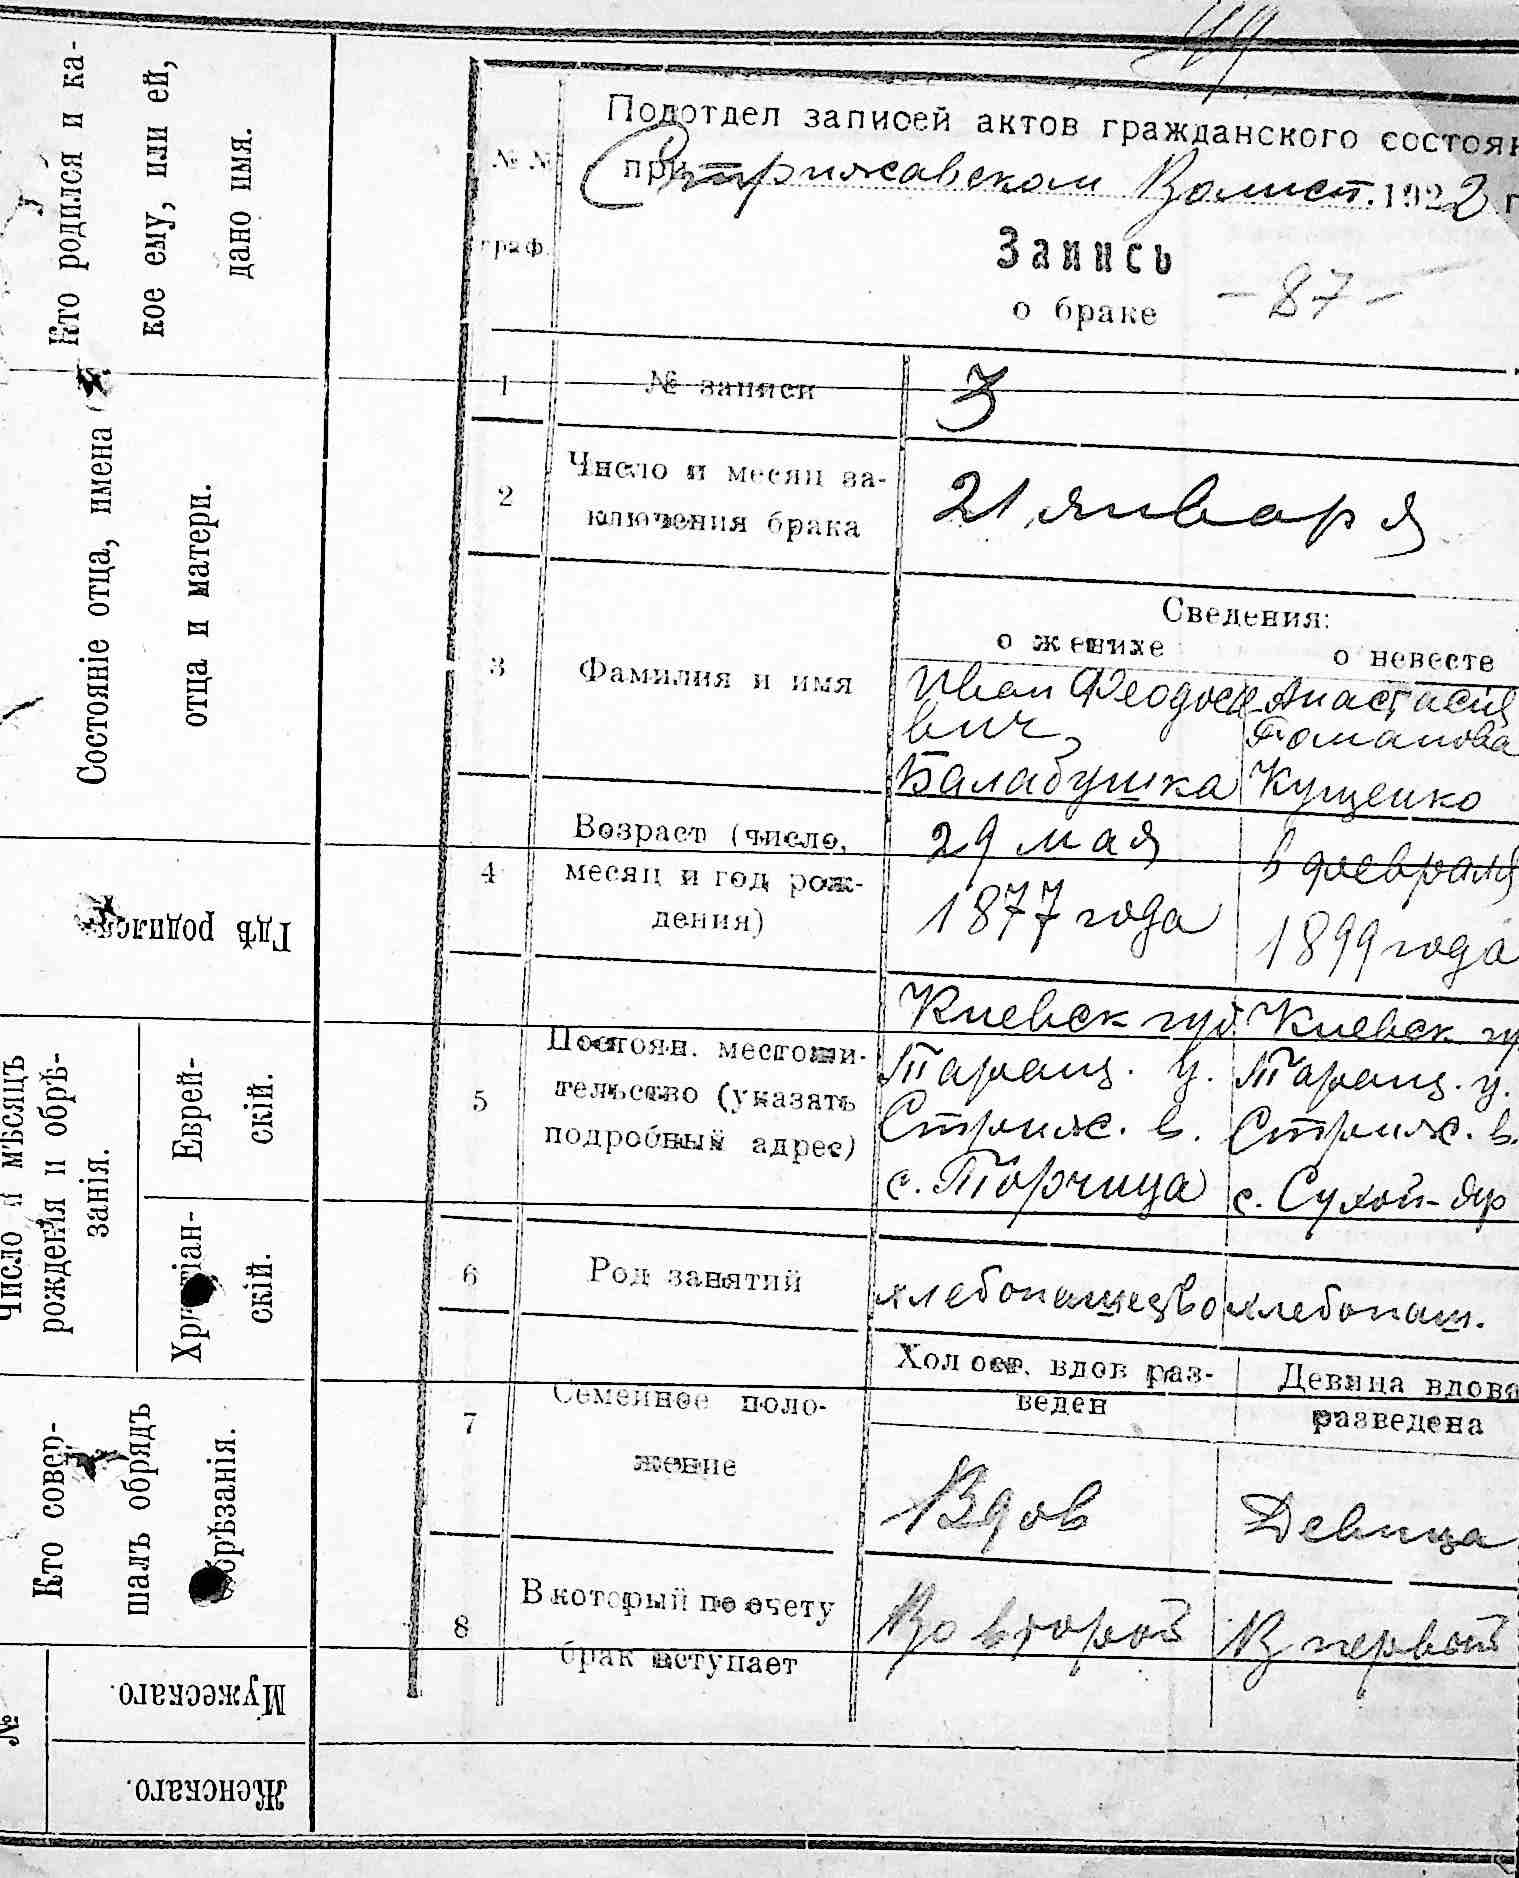 Кто родился и ка-
кое ему, или ей,
дано имя.
Состояніе отца, имена
отца и матери.
Гдѣ родился
Число и мѣсяцъ
рожденія и обрѣ-
занія.
Еврей-
скій.
Христіан-
скій.
Кто совер-
шалъ обрядъ
обрѣзанія.
№
Мужескаго.
Женскаго.
Подотдел записей актов гражданского состоян
при Стрижавском Волист. 1922 г
№ №
граф.
Запись
о браке
- 87 -
1 № записи 3
2 Число и месяц за-
ключения брака
21 января
Сведения:
о женихе о невесте
3 Фамилия и имя
Иван Феодосе
вич
Балабушка
Анастасия
Романова
Кущенко
4 Возраст (число,
месяц и год рож-
дения)
29 мая
1877 года
в февраля
1899 года
5 Постоян. местожи-
тельство (указать
подробный адрес)
Киевск губ.
Таращ. у.
Стриж. в.
с. Торчица
Киевск. гу
Таращ. у.
Стриж. в.
с. Сухой-яр
6 Род занятий
хлебопашество
хлебопаш.
7 Семейное поло-
жение
Холост. вдов раз-
веден
Девица вдова
разведена
Вдов
Девица
8 В который по счету
брак вступает
Во второй
В первой